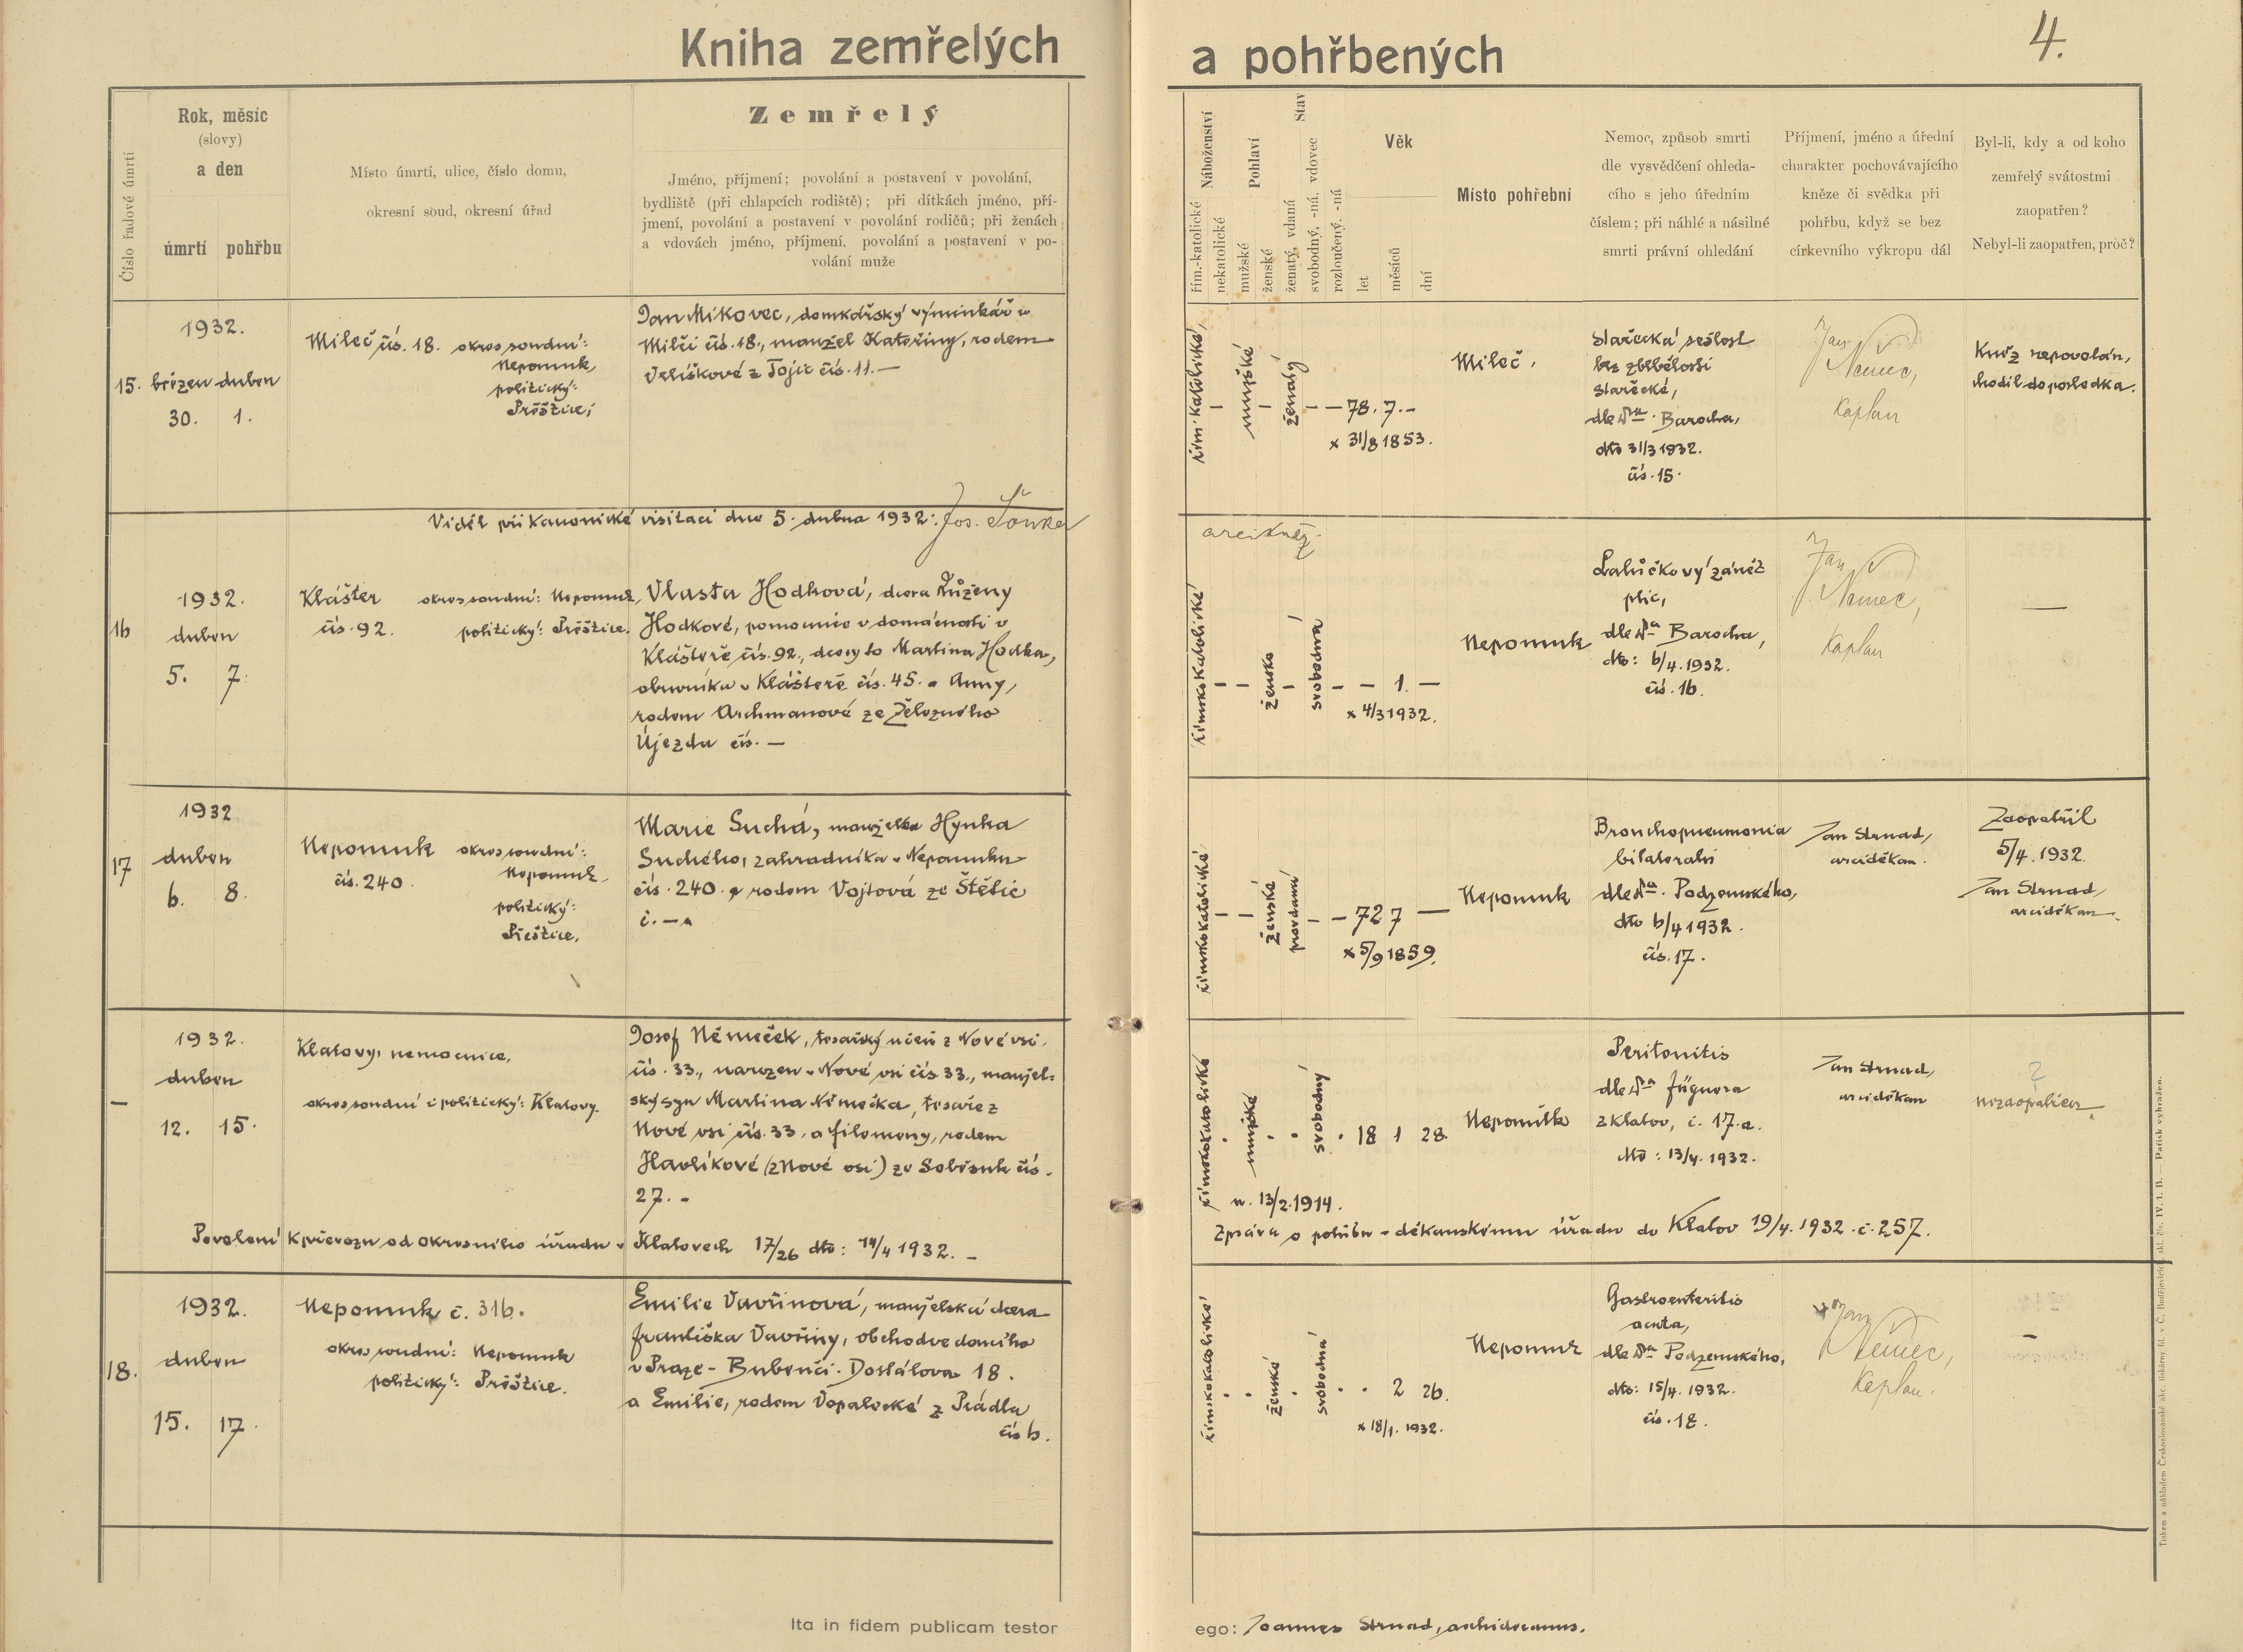 Kniha zemřelých a pohřbených
4.
Číslo řadové úmrtí
Rok, měsíc
(slovy)
a den
úmrtí pohřbu
Místo úmrtí, ulice, číslo domu,
okresní soud, okresní úřad
Zemřelý
Jméno, příjmení; povolání a postavení v povolání,
bydliště (při chlapcích rodiště); při dítkách jméno, pří-
jmení, povolání a postavení v povolání rodičů; při ženách
a vdovách jméno, příjmení, povolání a postavení v po-
volání muže
Náboženství
řím.-katolické
nekatolické
Pohlaví
mužské
ženské
Stav
ženatý, vdaná
svobodný, -ná, vdovec
rozloučený, -ná
Věk
let
měsíců
dní
Místo pohřební
Nemoc, způsob smrti
dle vysvědčení ohleda-
cího s jeho úředním
číslem; při náhlé a násilné
smrti právní ohledání
Příjmení, jméno a úřední
charakter pochovávajícího
kněze či svědka při
pohřbu, když se bez
církevního výkropu dál
Byl-li, kdy a od koho
zemřelý svátostmi
zaopatřen?
Nebyl-li zaopatřen, proč?
15.
1932.
březen duben
30. 1.
Mileč čís. 18. okres soudní:
Nepomuk,
politický:
Přeštice;
Jan Mikovec, domkářský výminkář v
Milči čís. 18., manžel Kateřiny, rodem
Velíškové z Tojic čís. 11. —
řím. katolické,
mužské
ženatý
— 78. 7. -
x 31/8 1853.
Mileč.
Stařecká sešlost
bez zblbělosti
stařecké,
dle Dra Barocha,
dto 31/3 1932.
čís. 15.
Jan Němec,
kaplan
Kněz nepovolán,
chodil do posledka.
Viděl při kanonické visitaci dne 5. dubna 1932: Jos.
arcikněz.
16
1932.
duben
5. 7.
Klášter okres soudní: Nepomuk,
čís. 92. politický: Přeštice.
Vlasta Hodková, dcera Růženy
Hodkové, pomocnice v domácnosti v
Klášteře čís. 92., dcery to Martina Hodka,
obuvníka v Klášteře čís. 45. a Anny,
rodem Aschmanové ze Železného
Újezdu čís. —
římskokatolické
žensko
svobodná
— 1. —
x 4/3 1932.
Nepomuk
Lalůčkový zánět
plic,
dle Dra Barocha,
dto: 6/4. 1932.
čís. 16.
Jan Němec,
kaplan
—
17
1932
duben
6. 8.
Nepomuk okres soudní:
čís. 240. Nepomuk.
politický:
Přeštice.
Marie Suchá, manželka Hynka
Suchého, zahradníka v Nepomuku
čís. 240. rodem Vojtová ze Štětic
č. —
římskokatolické
ženské
provdaná
— 72 7 —
x 5/9 1859.
Nepomuk
Bronchopneumonia
bilateralis
dle Dra. Podzemského,
dto 6/4 1932.
čís. 17.
Jan Strnad,
arciděkan.
Zaopatřil
5/4. 1932.
Jan Strnad,
arciděkan.
—
1932.
duben
12. 15.
Klatovy, nemocnice,
okres soudní i politický: Klatovy.
Josef Němeček, tesařský učeň z Nové vsi.
čís. 33., narozen v Nové vsi čís 33., manžel-
ský syn Martina Němečka, tesaře z
Nové vsi čís. 33. a Filomeny, rodem
Havlíkové (z Nové vsi) ze Soběsuk čís.
27. -
římskokatolické
mužské
svobodný
18 1 28.
n. 13/2. 1914.
Nepomuk
Peritonitis
dle Dra Fügnera
z Klatov, č. 17.a.
dto: 13/4. 1932.
Jan Strnad,
arciděkan
?
nezaopatřen.
Povolení k převozu od okresního úřadu v Klatovech 17/26 dto: 14/4 1932. —
Zpráva o pohřbu v děkanskému úřadu do Klatov 19/4. 1932. č. 257.
18.
1932.
duben
15. 17.
Nepomuk č. 316.
okres soudní: Nepomuk
politický: Přeštice.
Emilie Vavřinová, manželská dcera
Františka Vavřiny, obchodvedoucího
v Praze - Bubenči. Dostálova 18.
a Emilie, rodem Vopalecké z Prádla
čís 6.
římskokatolické
ženské
svobodná
2 26.
x 18/1. 1932.
Nepomuk
Gastroenteritis
acuta,
dle Dra Podzemského,
dto: 15/4. 1932.
čís. 18.
Jan Němec,
kaplan.
—
Ita in fidem publicam testor ego: Joannes Strnad, archidecanus.
Tiskem a nákladem Českoslovanské akc. tiskárny fil. v Č. Budějovicích, skl. čís. IV. 1. B. — Patisk vyhražen.